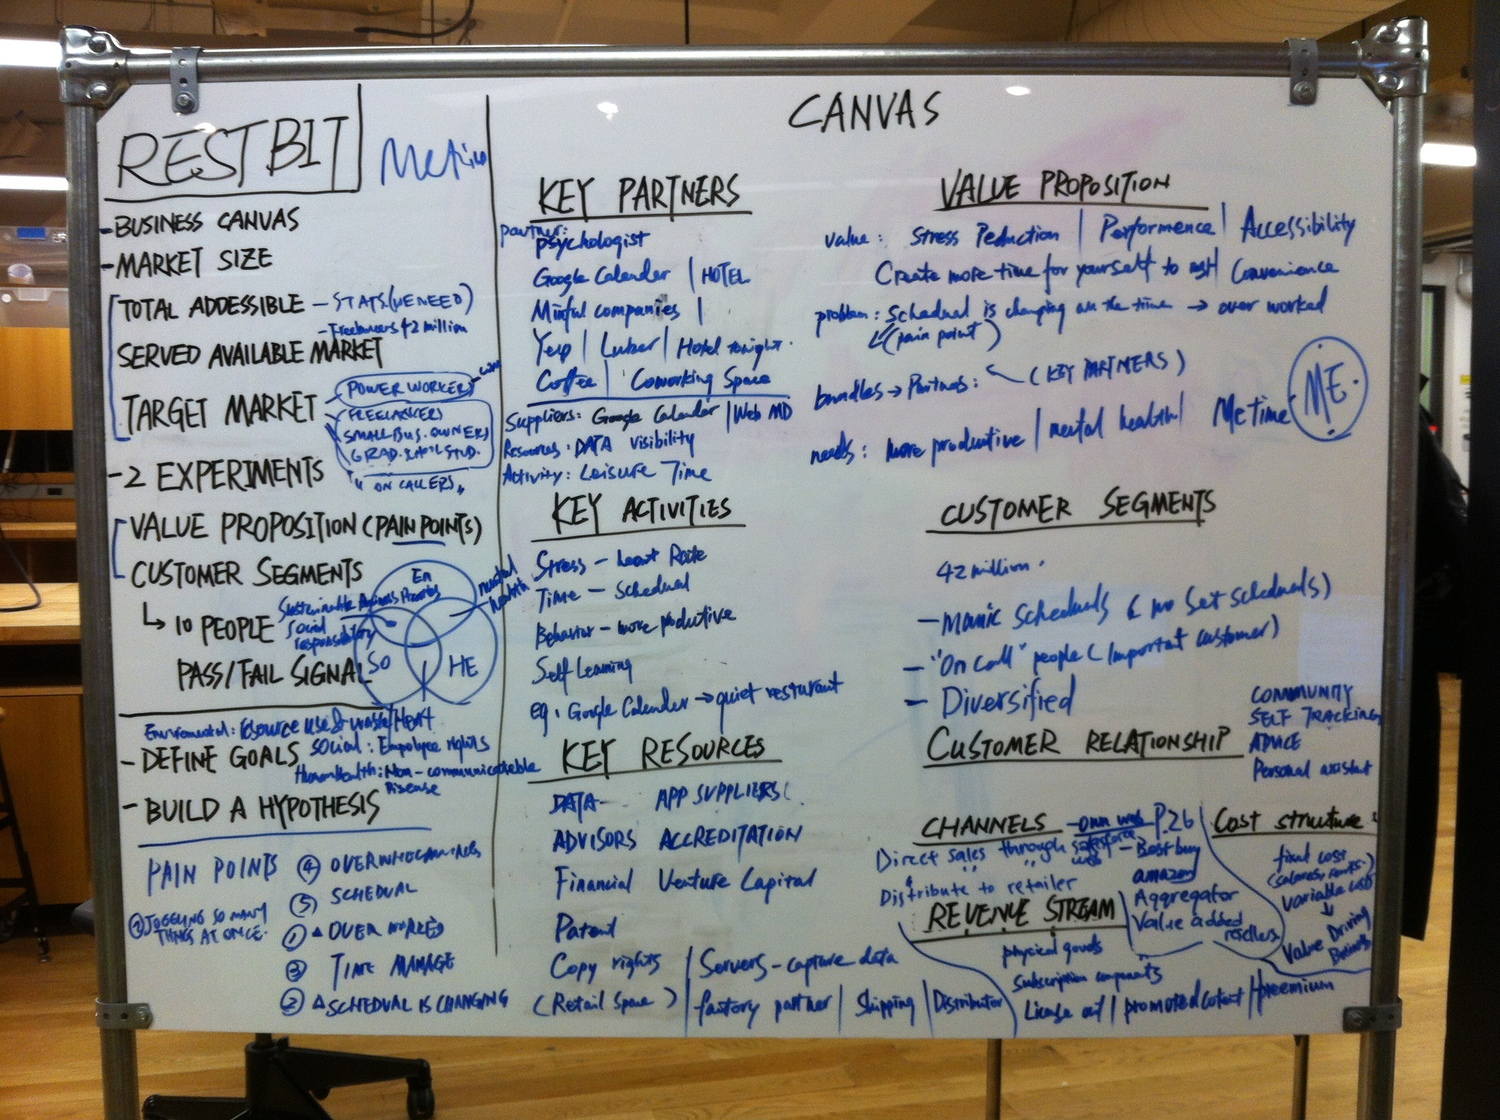 RESTBIT
- BUSINESS CANVAS
- MARKET SIZE
TOTAL ADDESSIBLE - STATS. (WE NEED)
- Freelancers 42 million
SERVED AVAILABLE MARKET
TARGET MARKET
POWER WORKERS
FREELANCERS
SMALL BUS. OWNERS
GRAD. STUD.
"ON CALLERS"
- 2 EXPERIMENTS
VALUE PROPOSITION (PAIN POINTS)
CUSTOMER SEGMENTS
↳ 10 PEOPLE
PASS/FAIL SIGNAL
En
SO
HE
mental health
Sustainable Business
Social responsibility
Enviromental: resource use & waste/
- DEFINE GOALS
Social: Employee rights
Human Health: Non-communicable Disease
- BUILD A HYPOTHESIS
PAIN POINTS
④ OVERWHELMING
⑤ SCHEDUAL
JOGGLING SO MANY
THINGS AT ONCE.
① △ OVER WORKED
③ TIME MANAGE
② △ SCHEDUAL IS CHANGING
CANVAS
KEY PARTNERS
partner:
psychologist
Google Calender | HOTEL
Minful companies |
Yelp | Luber | Hotel tonight.
Coffee | Coworking Space
Suppliers: Google Calendar | Web MD
Resources: DATA visibility
Activity: Leisure Time
KEY ACTIVITIES
Stress - heart Rate
Time - Schedual
Behavior - more productive
Self Learning
eg. Google Calender → quiet resturant
KEY RESOURCES
DATA- APP SUPPLIERS
ADVISORS ACCREDITATION
Financial Venture Capital
Patent
Copy rights
(Retail Space)
Servers - capture data
factory partner | Shipping | Distributor
VALUE PROPOSITION
value: Stress Reduction | Performence | Accessibility
Create more time for yourself to rest | Convenience
problem: schedual is changing all the time → over worked
(pain point)
bundles → Partners: (KEY PARTNERS)
needs: more productive | mental health | Me time
ME.
CUSTOMER SEGMENTS
42 million.
- Manic Scheduals (no set scheduals)
- "On call" people (Important customer)
- Diversified
CUSTOMER RELATIONSHIP
COMMUNITY
SELF TRACKING
ADVICE
Personal assistant
CHANNELS - own web P.26
Direct sales through salesforce
web
Distribute to retailer
- Best buy
amazon
Aggregator
Value added resellers
REVENUE STREAM
physical goods
Subscription components
License out | promoted content | freemium
Cost structure:
fixed cost
(salaries, rents)
variable cost
↓
Value Driving Business